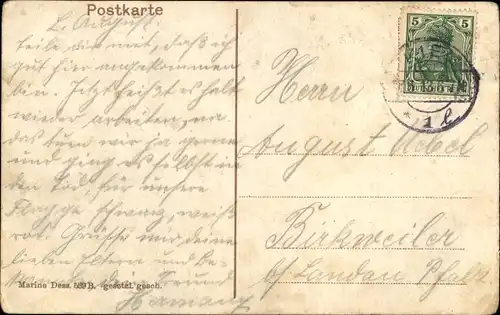 Postkarte
L. August!
teile dir mit, daß ich
gut hier angekommen
bin. Jetzt heißt es halt
wieder arbeiten, na
das tun wir ja gerne
und ging es selbst in
den Tod, für unsere
Flagge schwarz, weiß
rot. Grüße mir deine
lieben Eltern und
Freund
Hermann
Marine Dess. 539 B. gesetzl. gesch.
5
* 1 b
Herrn
August Uebel
Birkweiler
b/ Landau Pfalz